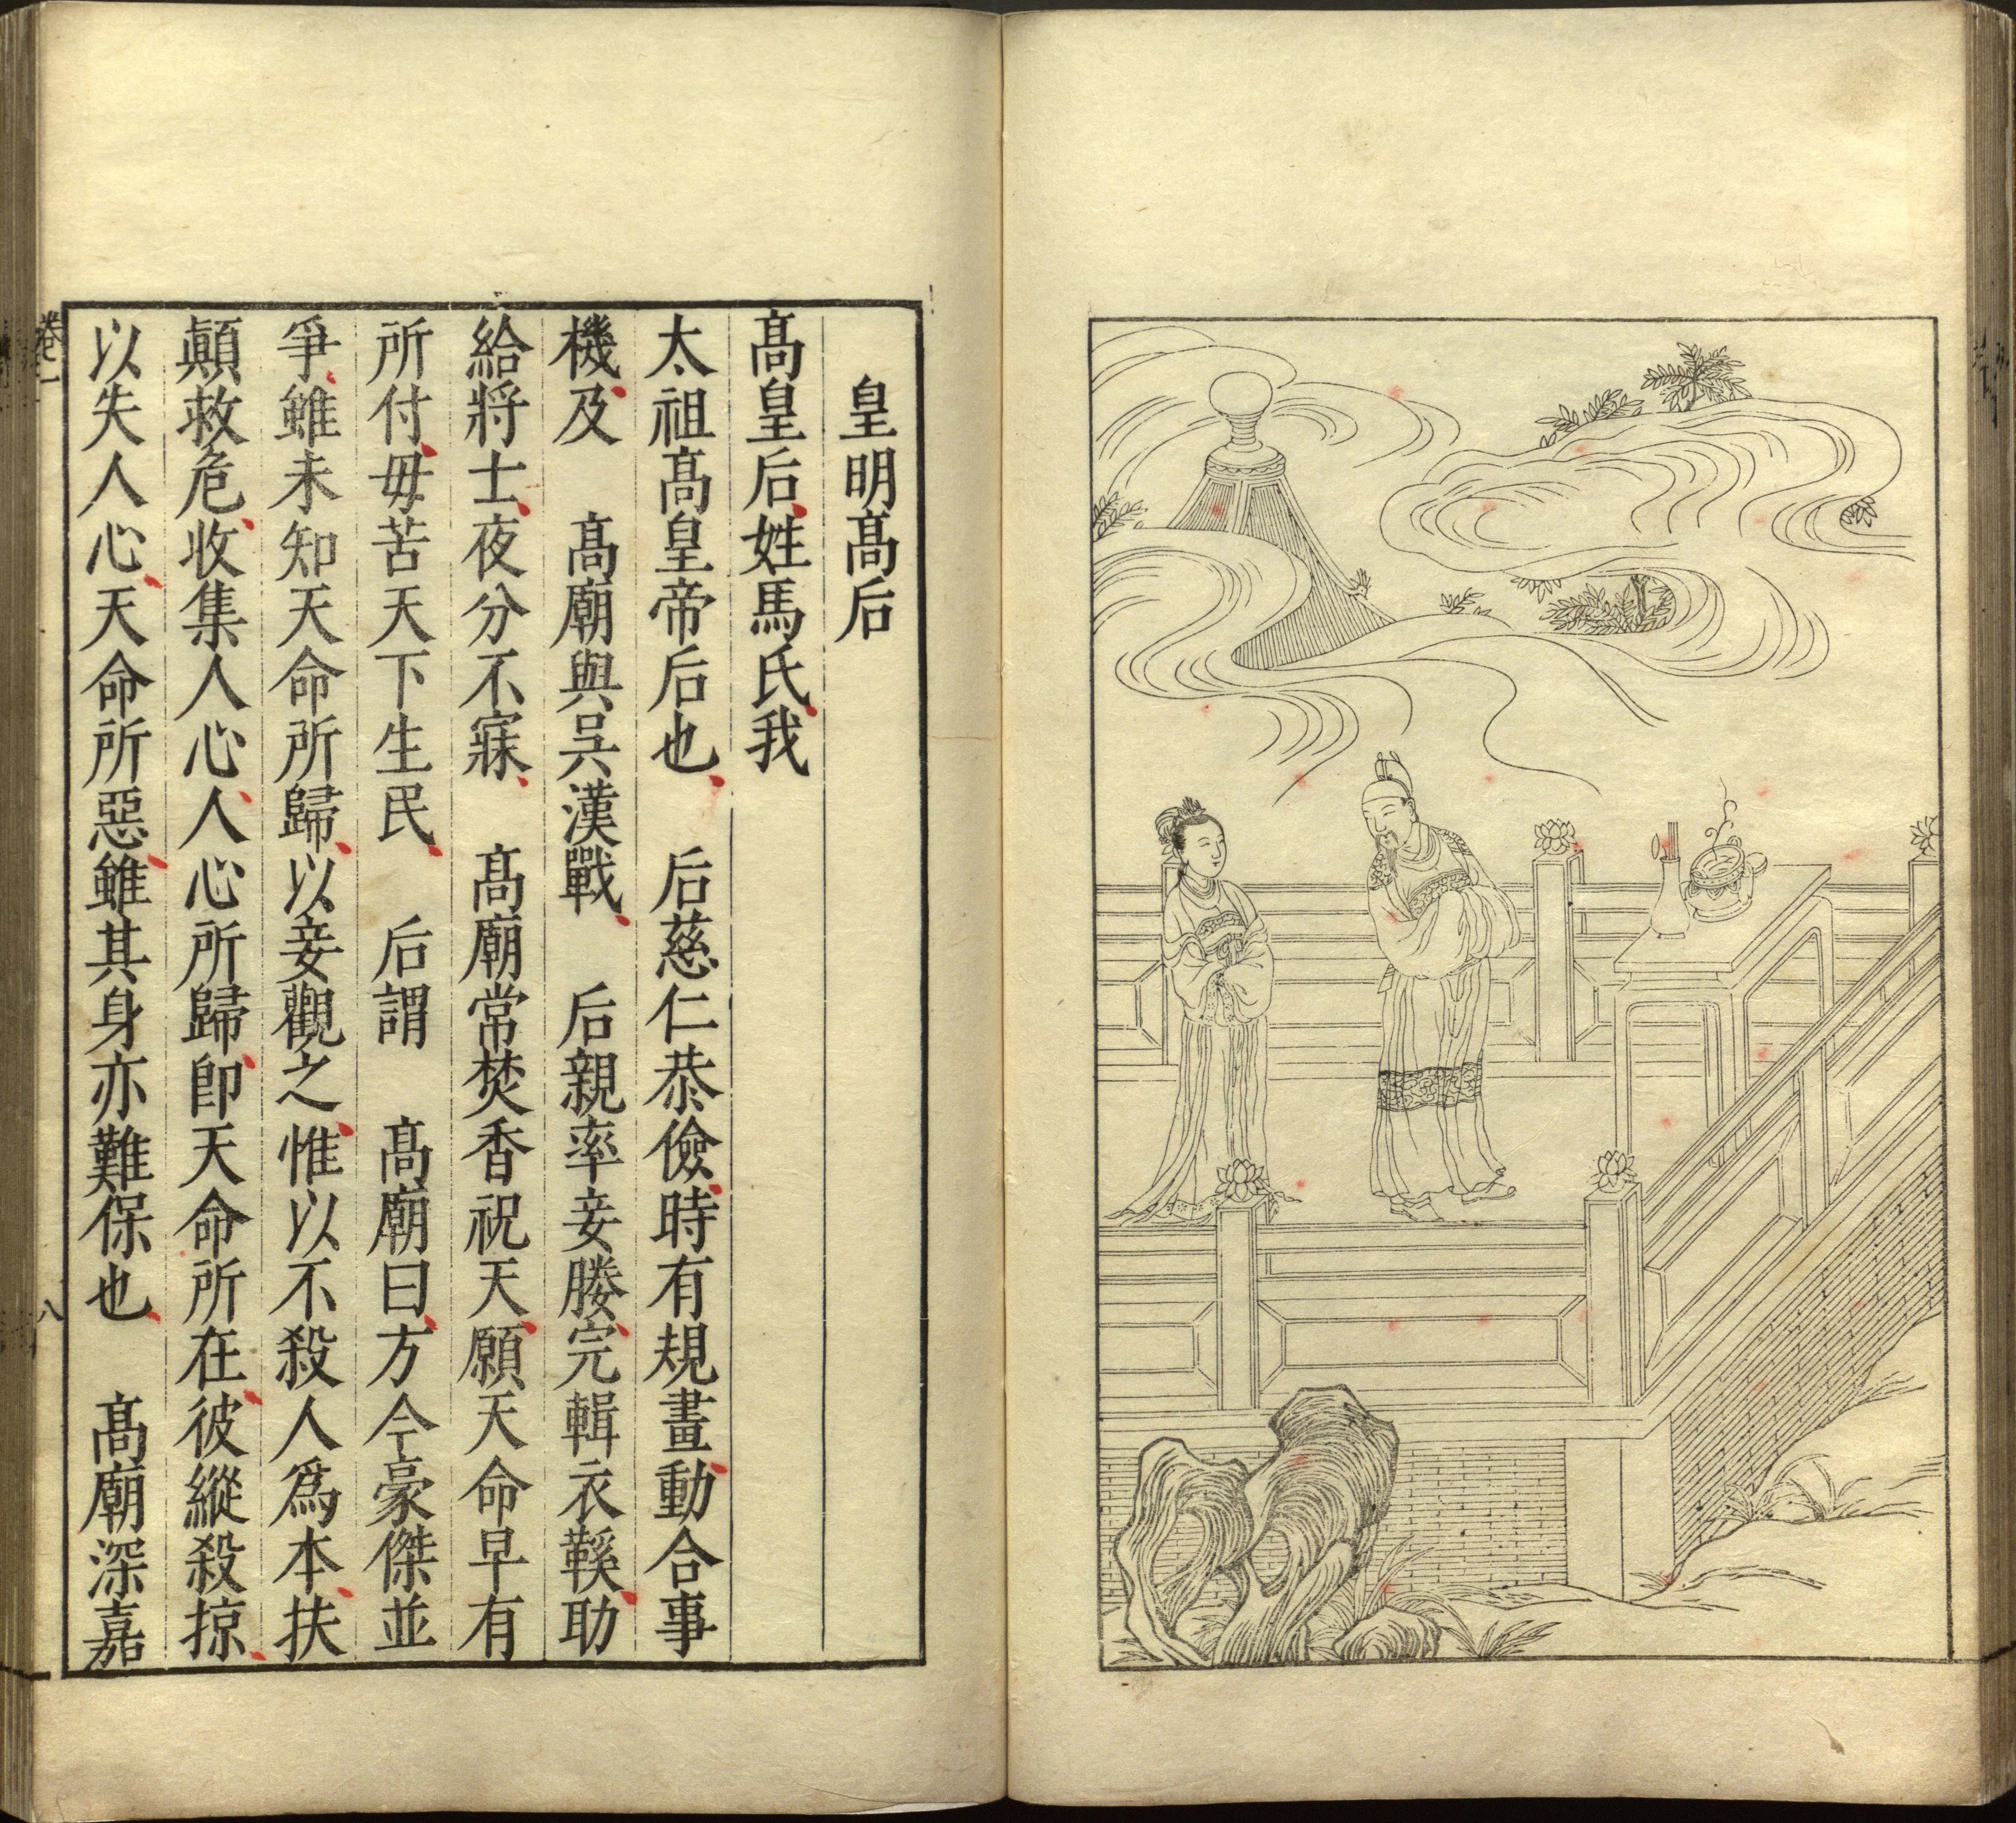 皇明髙后
髙皇后姓馬氏我
太祖髙皇帝后也　后慈仁恭儉時有規畫動合事
機及　髙廟與吳漢戰　后親率妾媵完輯衣鞵助
給將士夜分不寐　髙廟常焚香祝天願天命早有
所付毋苦天下生民　后謂　髙廟曰方今豪傑並
爭雖未知天命所歸以妾觀之惟以不殺人爲本扶
顛救危收集人心人心所歸卽天命所在彼縱殺掠
以失人心天命所惡雖其身亦難保也　髙廟深嘉
卷一
八